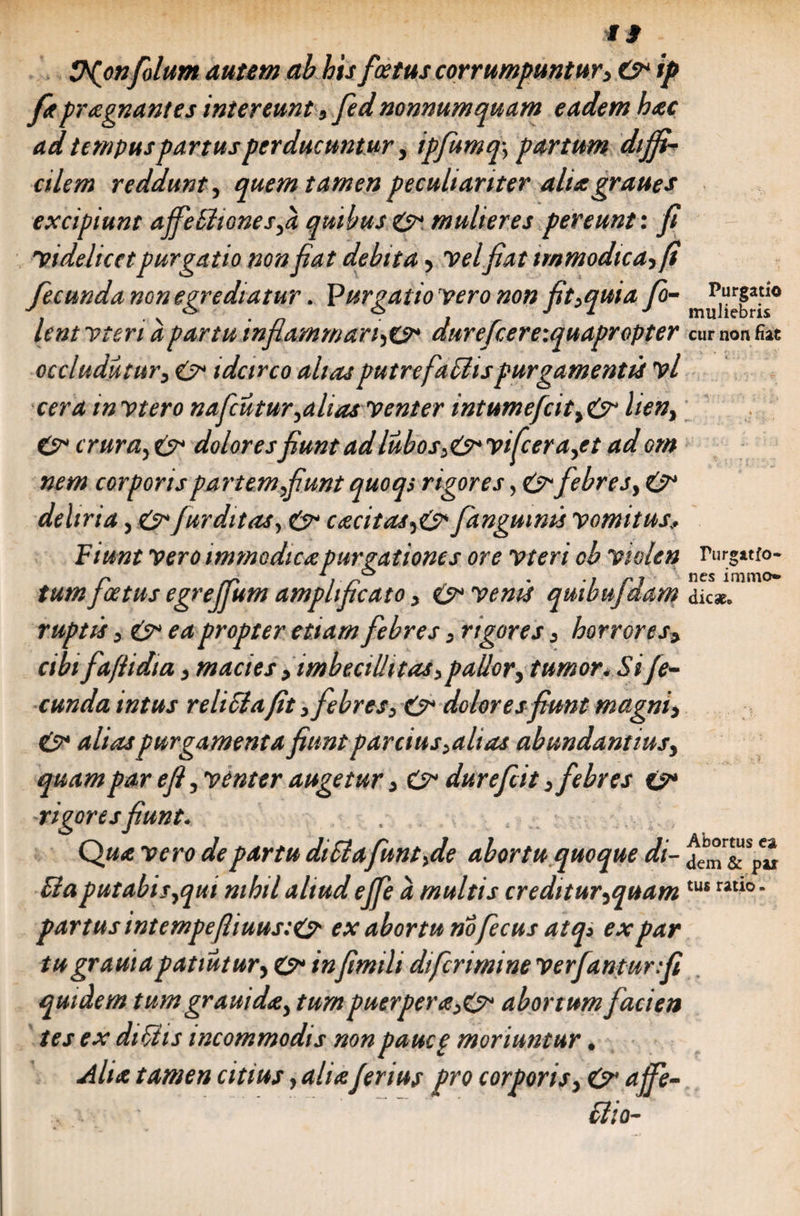 19
Non ſolum autem ab his fœtus corrumpuntur, & ip
ſæ prægnantes intereunt, ſed nonnumquam eadem hæc
ad tempus partus perducuntur, ipſumq; partum diffi-
cilem reddunt, quem tamen peculiariter aliæ graues
excipiunt affectiones, à quibus & mulieres pereunt: ſi
videlicet purgatio non fiat debita, vel fiat immodica, ſi
ſecunda non egrediatur. Purgatio vero non fit, quia ſo-
lent vteri à partu inflammari, & dureſcere: quapropter
occludūtur, & idcirco alias putrefactis purgamentis vl
cera in vtero naſcūtur, alias venter intumeſcit, & lien,
& crura, & dolores fiunt ad lūbos, & viſcera, et ad om
nem corporis partem, fiunt quoqȝ rigores, & febres, &
deliria, & ſurditas, & cæcitas, & ſanguinis vomitus.
Fiunt vero immodicæ purgationes ore vteri ob violen
tum fœtus egreſſum amplificato, & venis quibuſdam
ruptis, & ea propter etiam febres, rigores, horrores,
cibi faſtidia, macies, imbecillitas, pallor, tumor. Si ſe-
cunda intus relicta ſit, febres, & dolores fiunt magni,
& alias purgamenta fiunt parcius, alias abundantius,
quam par eſt, venter augetur, & dureſcit, febres &
rigores fiunt.
Quæ vero de partu dicta ſunt, de abortu quoque di-
cta putabis, qui nihil aliud eſſe à multis creditur, quam
partus intempeſtiuus: & ex abortu nō ſecus atqȝ ex par
tu grauia patiūtur, & in ſimili diſcrimine verſantur: ſi
quidem tum grauidæ, tum puerperæ, & abortum facien
tes ex dictis incommodis non paucę moriuntur.
Aliæ tamen citius, aliæ ſerius pro corporis, & affe-
ctio-
Purgatio
muliebris
cur non fiat
Purgatio-
nes immo-
dicæ.
Abortus ea
dem & par
tus ratio.